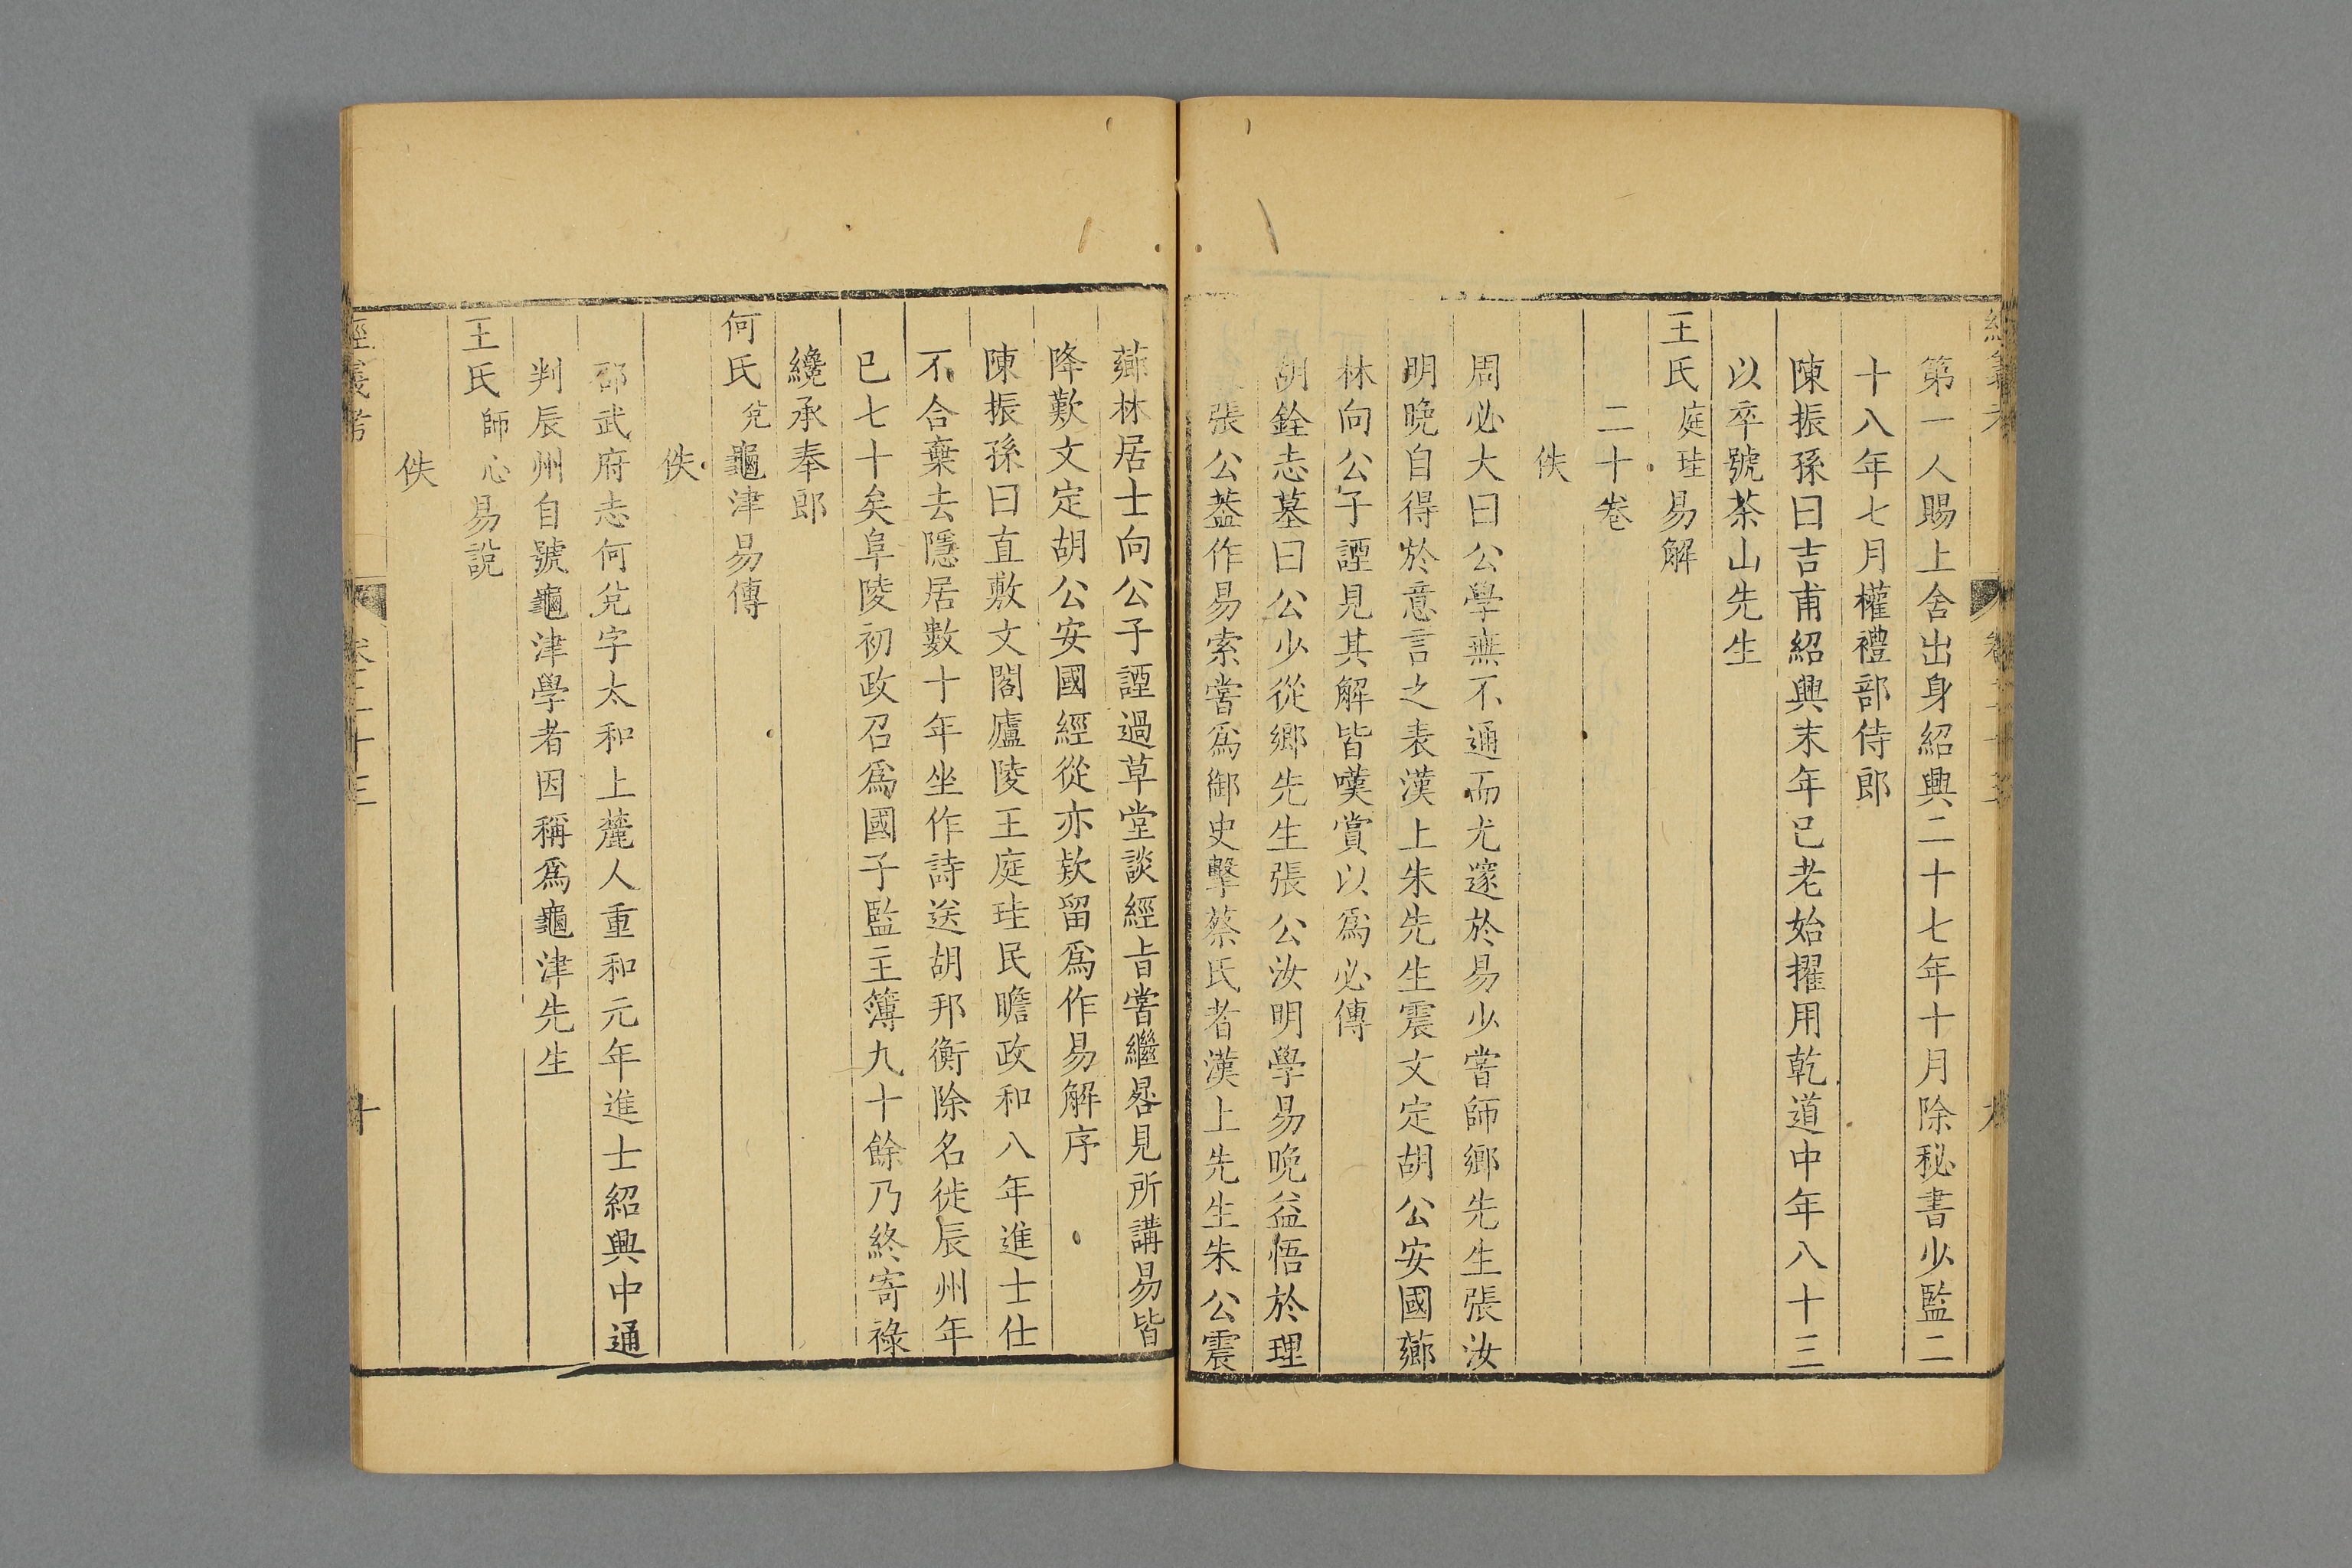 第一人賜上舍出身紹興二十七年十月除秘書少監二
十八年七月權禮部侍郎
陳振孫曰吉甫紹興末年已老始擢用乾道中年八十三
以卒號茶山先生
王氏庭珪易解
二十卷
佚
周必大曰公學無不通而尤邃於易少嘗師鄉先生張汝
明晚自得於意言之表漢上朱先生震文定胡公安國薌
林向公子諲見其解皆嘆賞以爲必傳
胡銓志墓曰公少從鄉先生張公汝明學易晚益悟於理
張公葢作易索嘗爲御史擊蔡氏者漢上先生朱公震
薌林居士向公子諲過草堂談經旨嘗繼晷見所講易皆
降歎文定胡公安國經從亦欵留爲作易解序
陳振孫曰直敷文閣廬陵王庭珪民瞻政和八年進士仕
不合棄去隱居數十年坐作詩送胡邦衡除名徙辰州年
已七十矣阜陵初政召爲國子監主簿九十餘乃終寄祿
纔承奉郎
何氏兌龜津易傳
佚
邵武府志何兌字太和上麓人重和元年進士紹興中通
判辰州自號龜津學者因稱爲龜津先生
王氏師心易說
佚
經義考
十